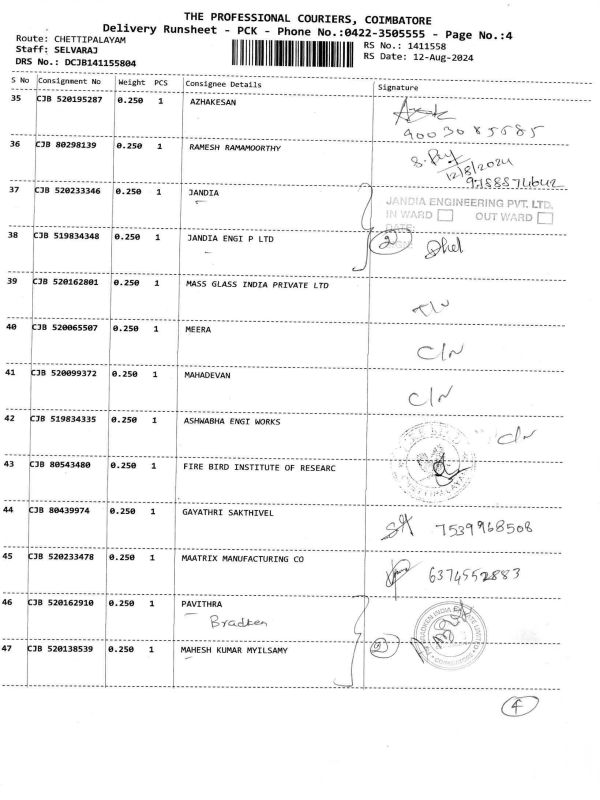 THE PROFESSIONAL COURIERS, COIMBATORE
Delivery Runsheet - PCK - Phone No.:0422-3505555 - Page No.:4
Route: CHETTIPALAYAM RS No.: 1411558
Staff: SELVARAJ RS Date: 12-Aug-2024
DRS No.: DCJB141155804
S No Consignment No Weight PCS Consignee Details Signature
35 CJB 520195287 0.250 1 AZHAKESAN
9003085585
36 CJB 80298139 0.250 1 RAMESH RAMAMOORTHY
12/8/2024
37 CJB 520233346 0.250 1 JANDIA
JANDIA ENGINEERING PVT. LTD.
IN WARD OUT WARD
38 CJB 519834348 0.250 1 JANDIA ENGI P LTD 2
39 CJB 520162801 0.250 1 MASS GLASS INDIA PRIVATE LTD
40 CJB 520065507 0.250 1 MEERA C/N
41 CJB 520099372 0.250 1 MAHADEVAN C/N
42 CJB 519834335 0.250 1 ASHWABHA ENGI WORKS C/N
43 CJB 80543480 0.250 1 FIRE BIRD INSTITUTE OF RESEARC
44 CJB 80439974 0.250 1 GAYATHRI SAKTHIVEL 7539968508
45 CJB 520233478 0.250 1 MAATRIX MANUFACTURING CO 6374552883
46 CJB 520162910 0.250 1 PAVITHRA
Bradken
47 CJB 520138539 0.250 1 MAHESH KUMAR MYILSAMY 2
4